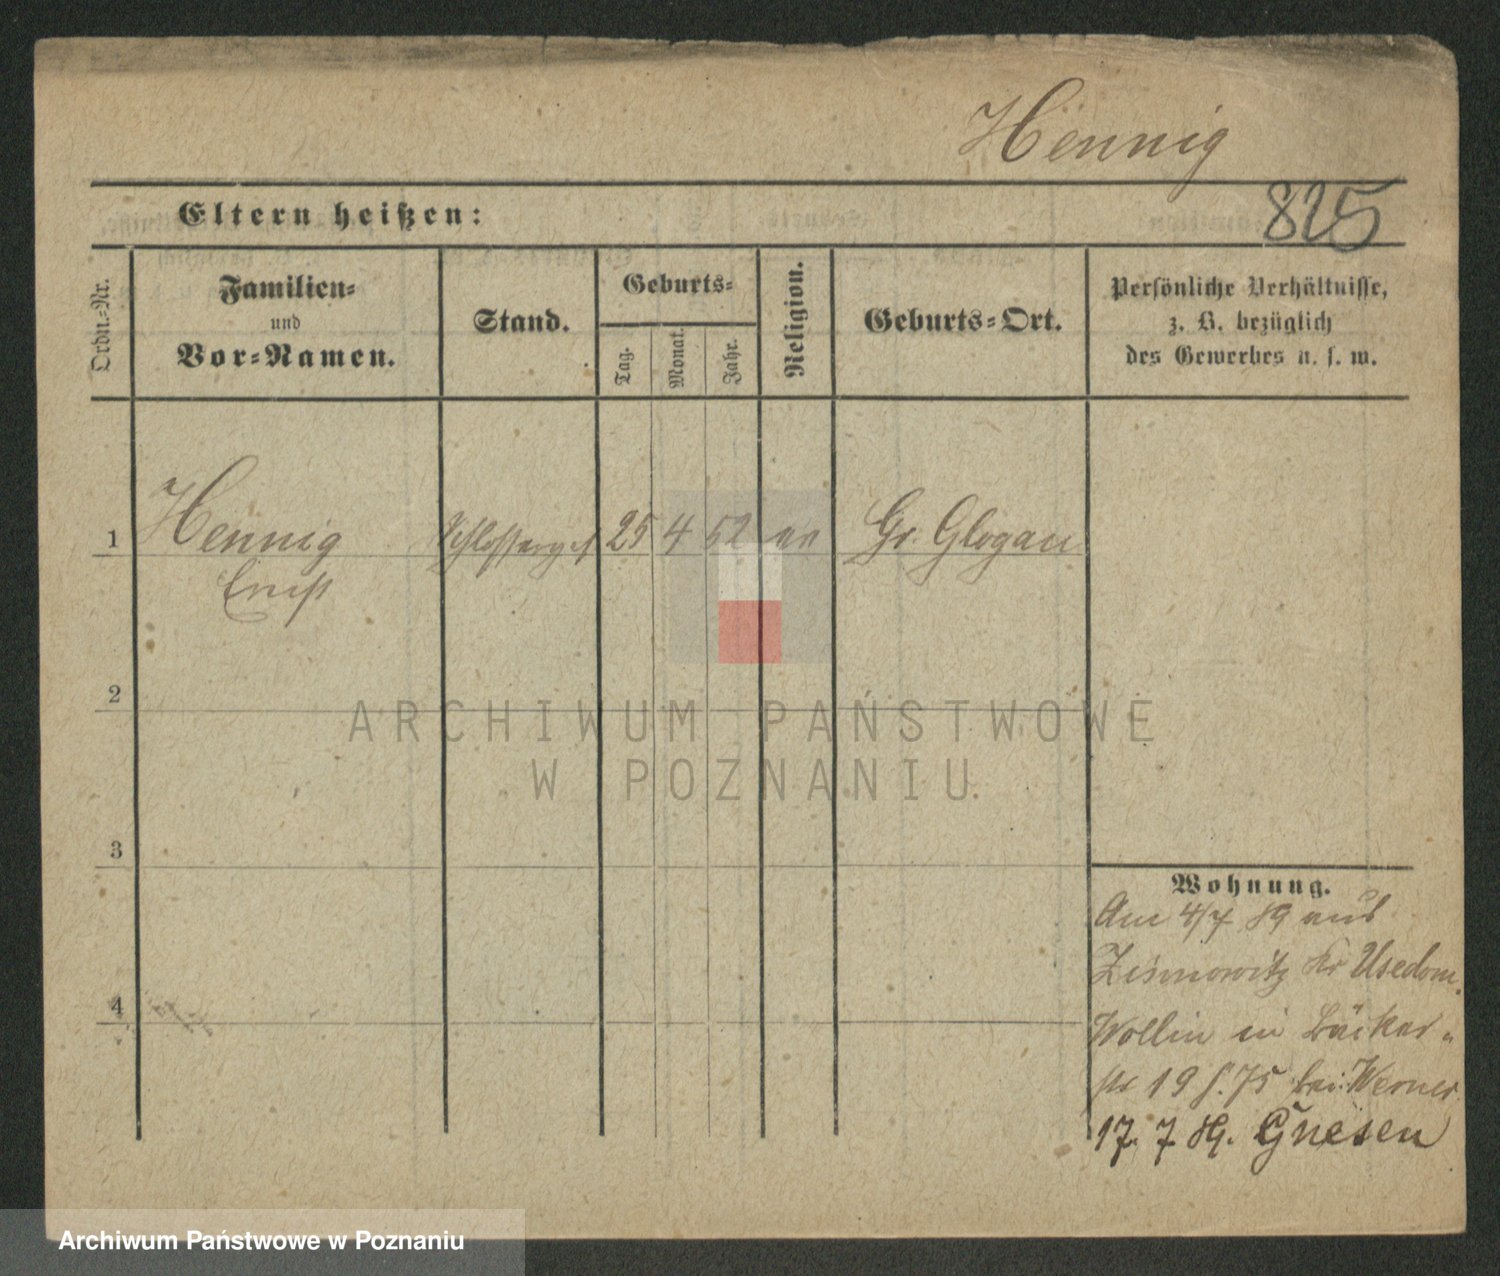 Hennig
825
Eltern heißen:
Ordn.-Nr.
Familien-
und
Vor-Namen.
Stand.
Geburts-
Tag.
Monat.
Jahr.
Religion.
Geburts-Ort.
Persönliche Verhältnisse,
z. B. bezüglich
des Gewerbes u. s. w.
1 Hennig Schlosserges 25 4 52 ev Gr. Glogau
Ernst
2
3
4
Wohnung.
Am 4/7 89 aus
Kr Usedom
Wollin in Bäcker-
str 19 f. 75 bei Werner
17. 7 89. Gnesen
ARCHIWUM PAŃSTWOWE
W POZNANIU
Archiwum Państwowe w Poznaniu